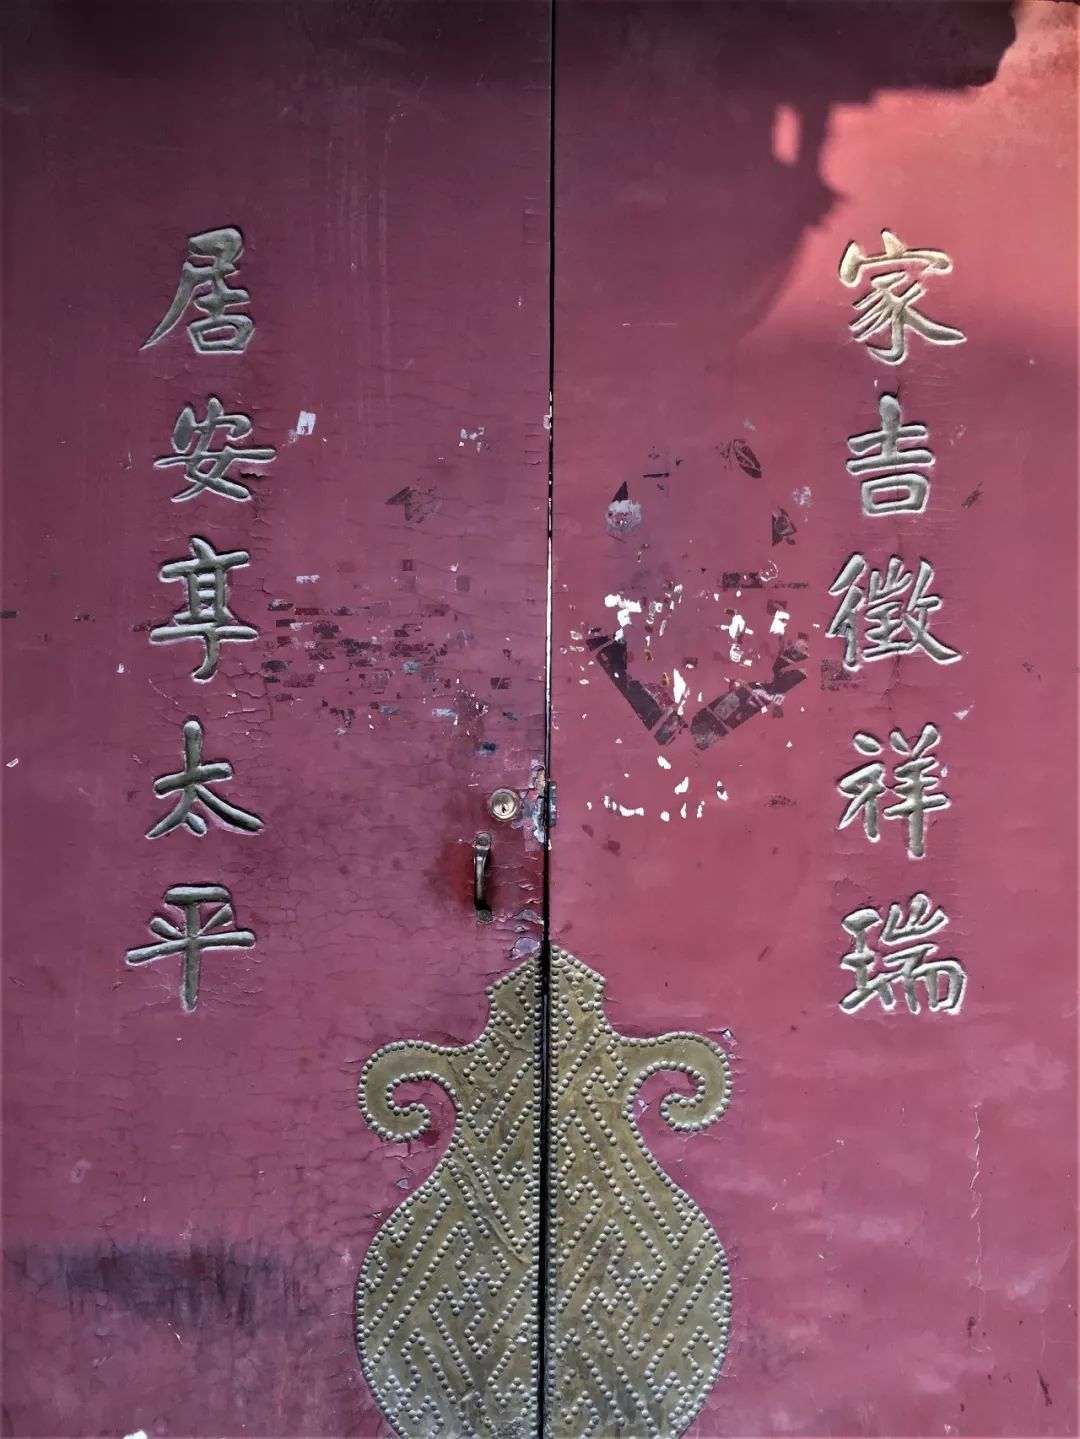 家吉徵祥瑞
居安享太平